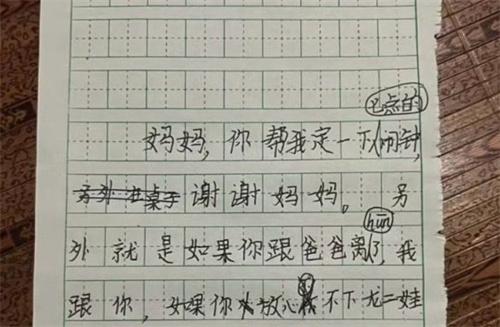 点的
妈妈，你帮我定一下闹钟，
谢谢妈妈。另
hūn
外就是如果你跟爸爸离了，我
跟你，如果你放心不下龙二娃